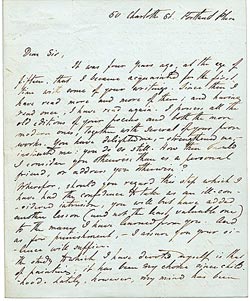 60 Charlotte St. Portland Place
Dear Sir,
It was four years ago, at the age of
fifteen, that I became acquainted for the first
time with some of your writings. Since then I
have read more and more of them; and having
read once, I have read again. I possess all the
old editions of your poems and both the more
modern ones, together with several of your prose
works. You have delighted me, strengthened me,
instructed me; you do so still. How then should
I consider you otherwise than as a personal
friend, or address you otherwise?
Wherefore, should you regard the step which I
have had the confidence to take as an ill-con-
sidered intrusion, you will but have added
another lesson (and not the least valuable one)
to the many I have learned from you. And
as for punishment, I assure you your si-
lence will suffice.
The study to which I have devoted myself is that
of painting; it has been my choice since child-
hood. Lately, however, my mind has been